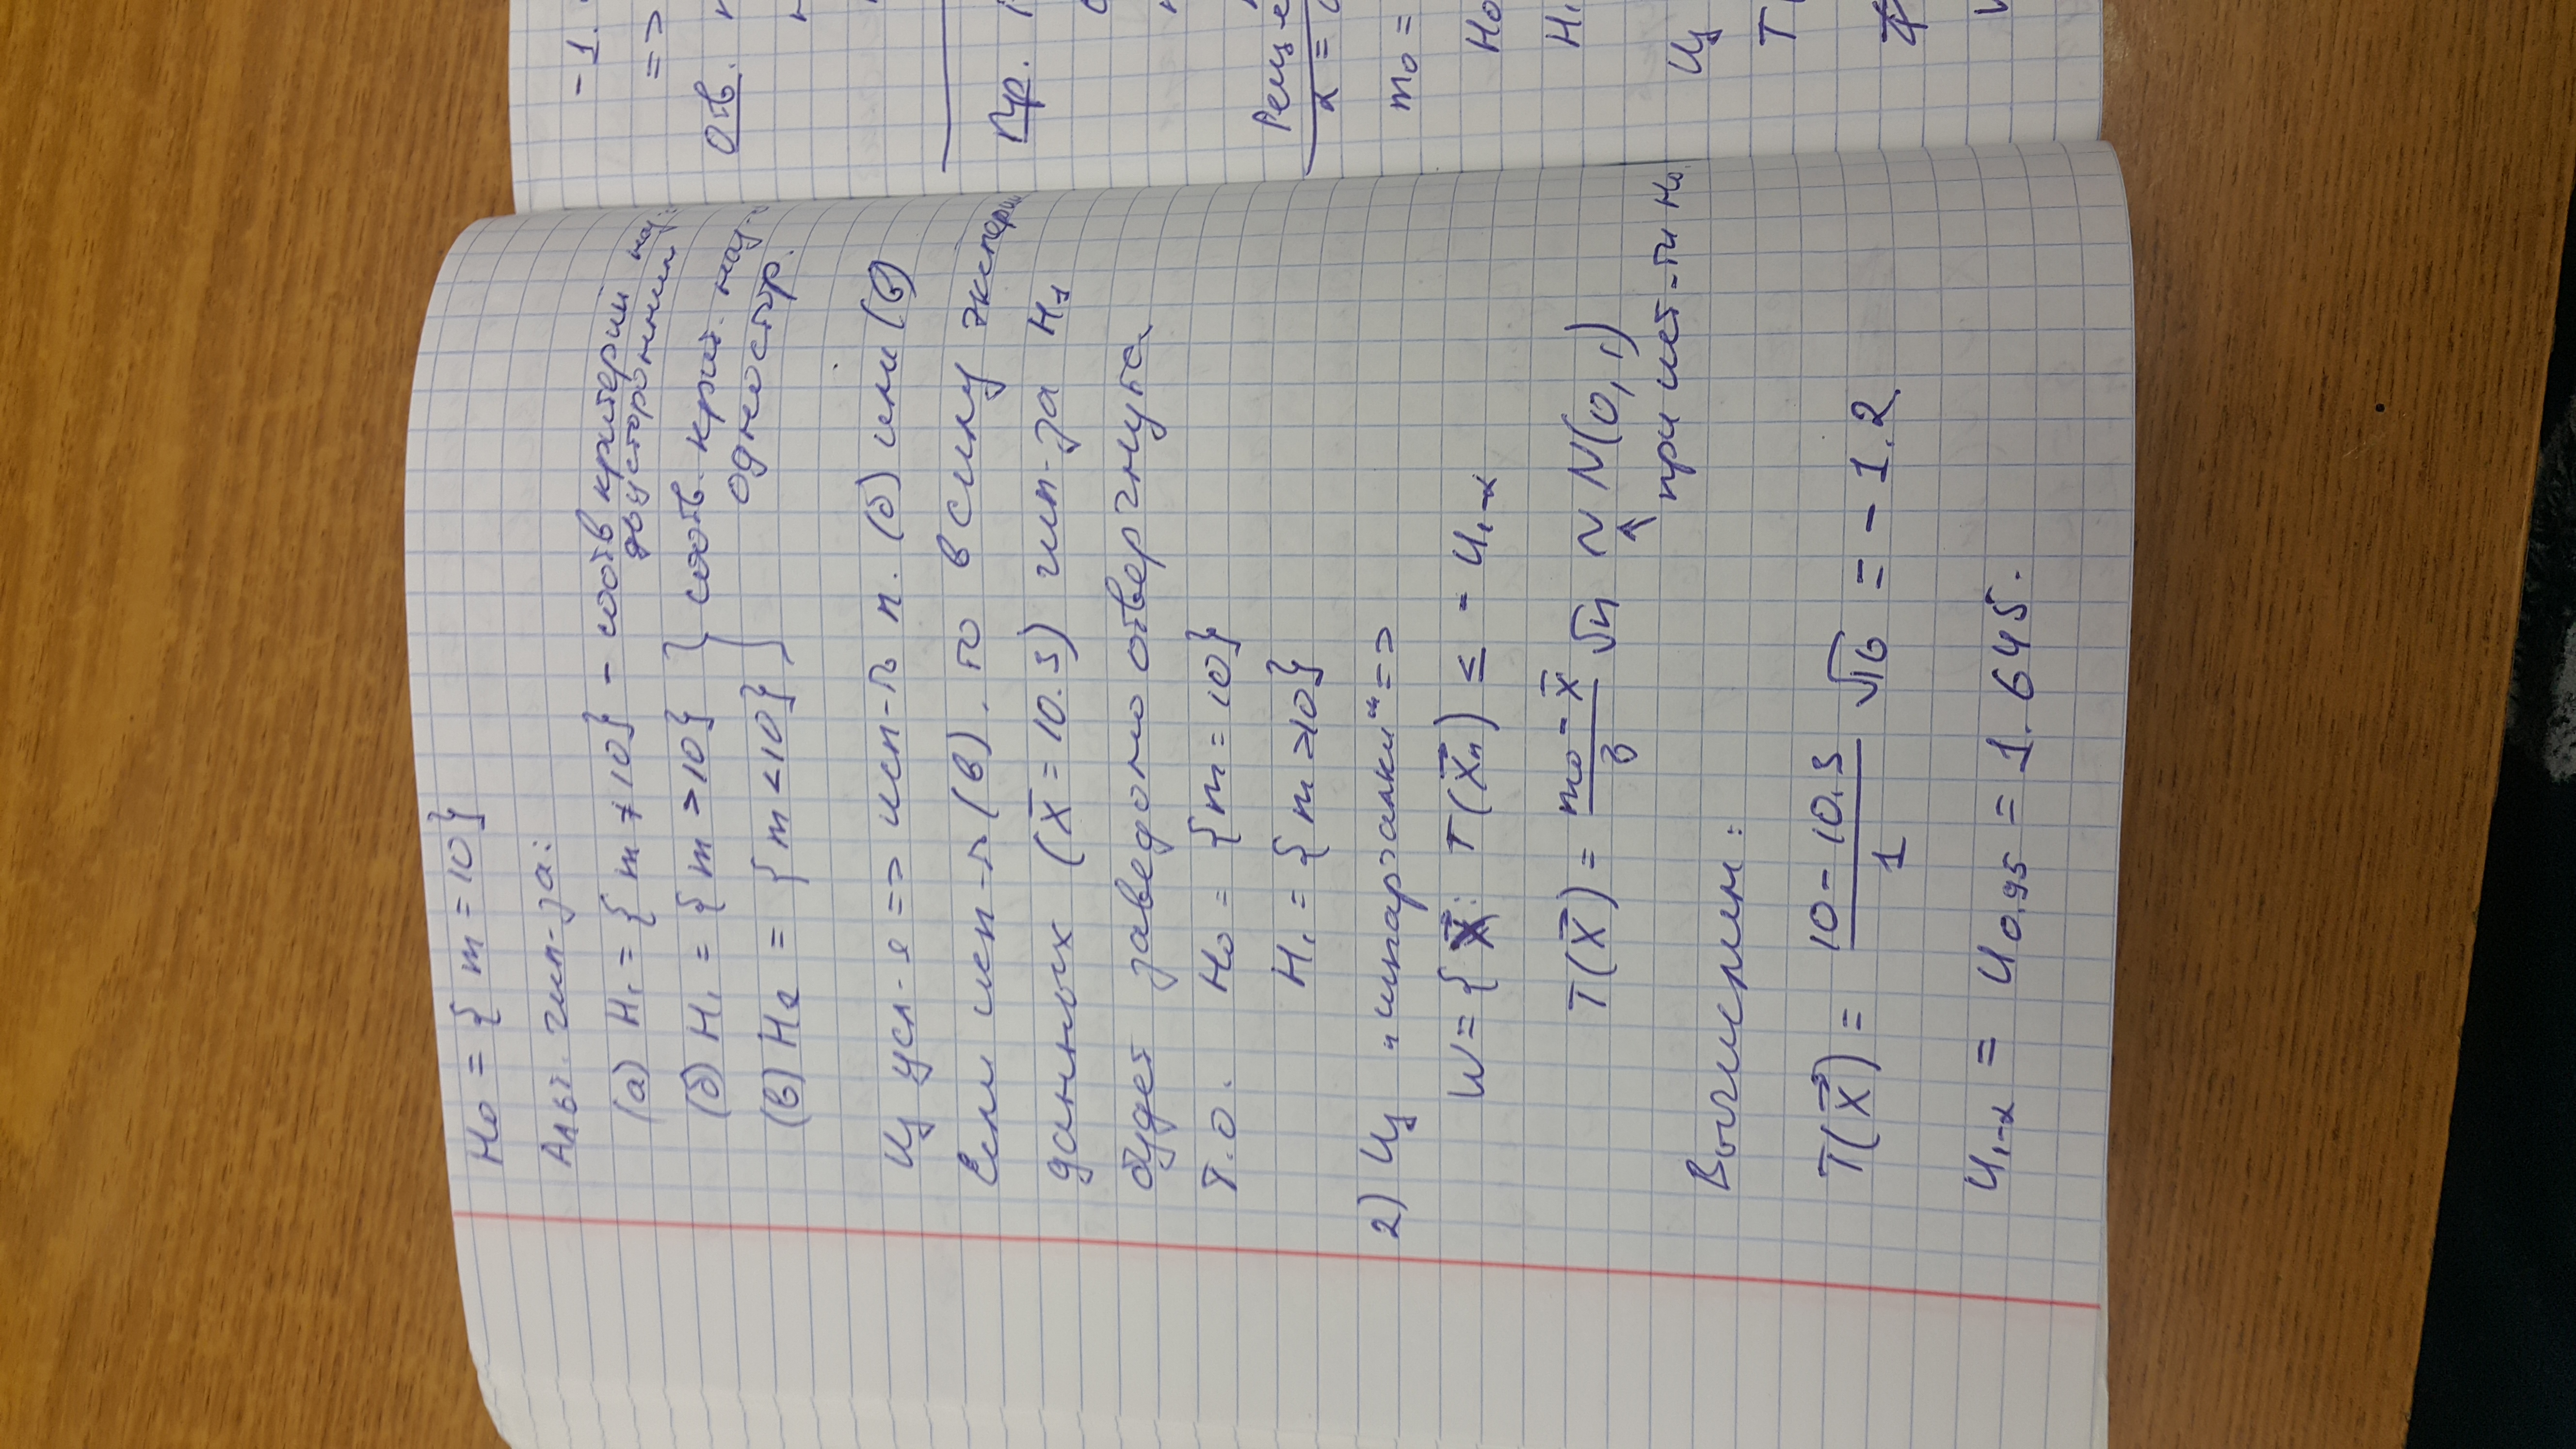 H₀ = { m = 10}
Альт. гип-за:
(а) H₁ = { m ≠ 10} - соотв критерий наз-
двусторонним
(б) H₁ = { m > 10} } соотв. крит. наз-
(в) H₂ = { m < 10} } одностор.
Из усл-я => исп-ть п. (б) или (в)
Если исп-ть (в), то в силу экспери
данных (x̄ = 10.3) гип-за H₁
будет заведомо отвергнута
Т.о. H₀ = {m = 10}
H₁ = { m > 10}
2) Из "шпаргалки" =>
W = { X⃗ : T(X⃗ₙ) ≤ - u₁₋α
T(X⃗) = (m₀ - x̄)/σ √n ~ N(0, 1)
↑ при ист-ти H₀.
Вычислим:
T(X⃗) = (10 - 10.3)/1 √16 = - 1.2
u₁₋α = u₀.₉₅ = 1.645.
-1.
=>
Отв.
Пр.
Реше
α =
m₀ =
H₀
H₁
Из
T(